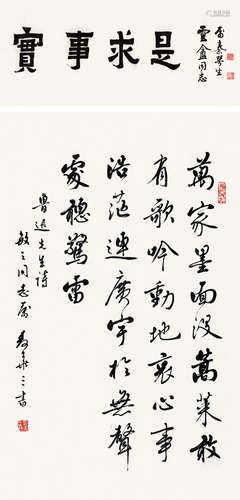 實事求是
同志
萬家墨面沒蒿萊敢
有歌吟動地哀心事
浩茫連廣宇於無聲
處聽驚雷
魯迅先生詩
敏之同志屬
書